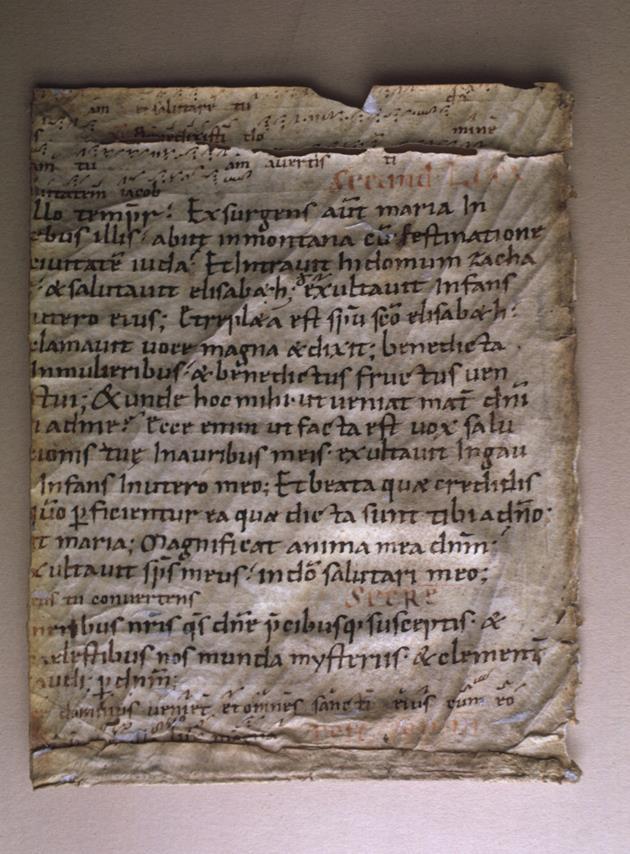 am salutare tu
benedixisti do mine
am tu am avertis ti
uitatem iacob Secund L
llo tempr̄: Exsurgens aut̄ maria In
ebus illis· abiit inmontana cū festinatione
ciuitatē iuda· Et Intrauit In domum zacha
· & salutauit elisab&h; exultauit Infans
utero eius; Et repl&a est sp̄u sc̄o elisab&h·
clamauit uoce magna & dixit; benedicta
Inmulieribus· & benedictus fructus uen
tui; & unde hoc mihi· ut ueniat mat̄ dn̄i
i ad me? Ecce enim ut facta est uox salu
ionis tuę Inauribus meis· exultauit Ingau
Infans Inutero meo; Et beata quæ credidis
qūo p̄ficientur ea quæ dicta sunt tibi a dn̄o;
t maria; Magnificat anima mea dn̄m;
xultauit sp̄s meus· in dō salutari meo;
us tu convertens Secre
neribus nr̄is qs̄ dn̄e p̄cibusq· susceptis· &
ælestibus nos munda mysteriis· & clement̄
audi; p̄ dn̄m;
dominus veniet et omnes sancti eius cum eo